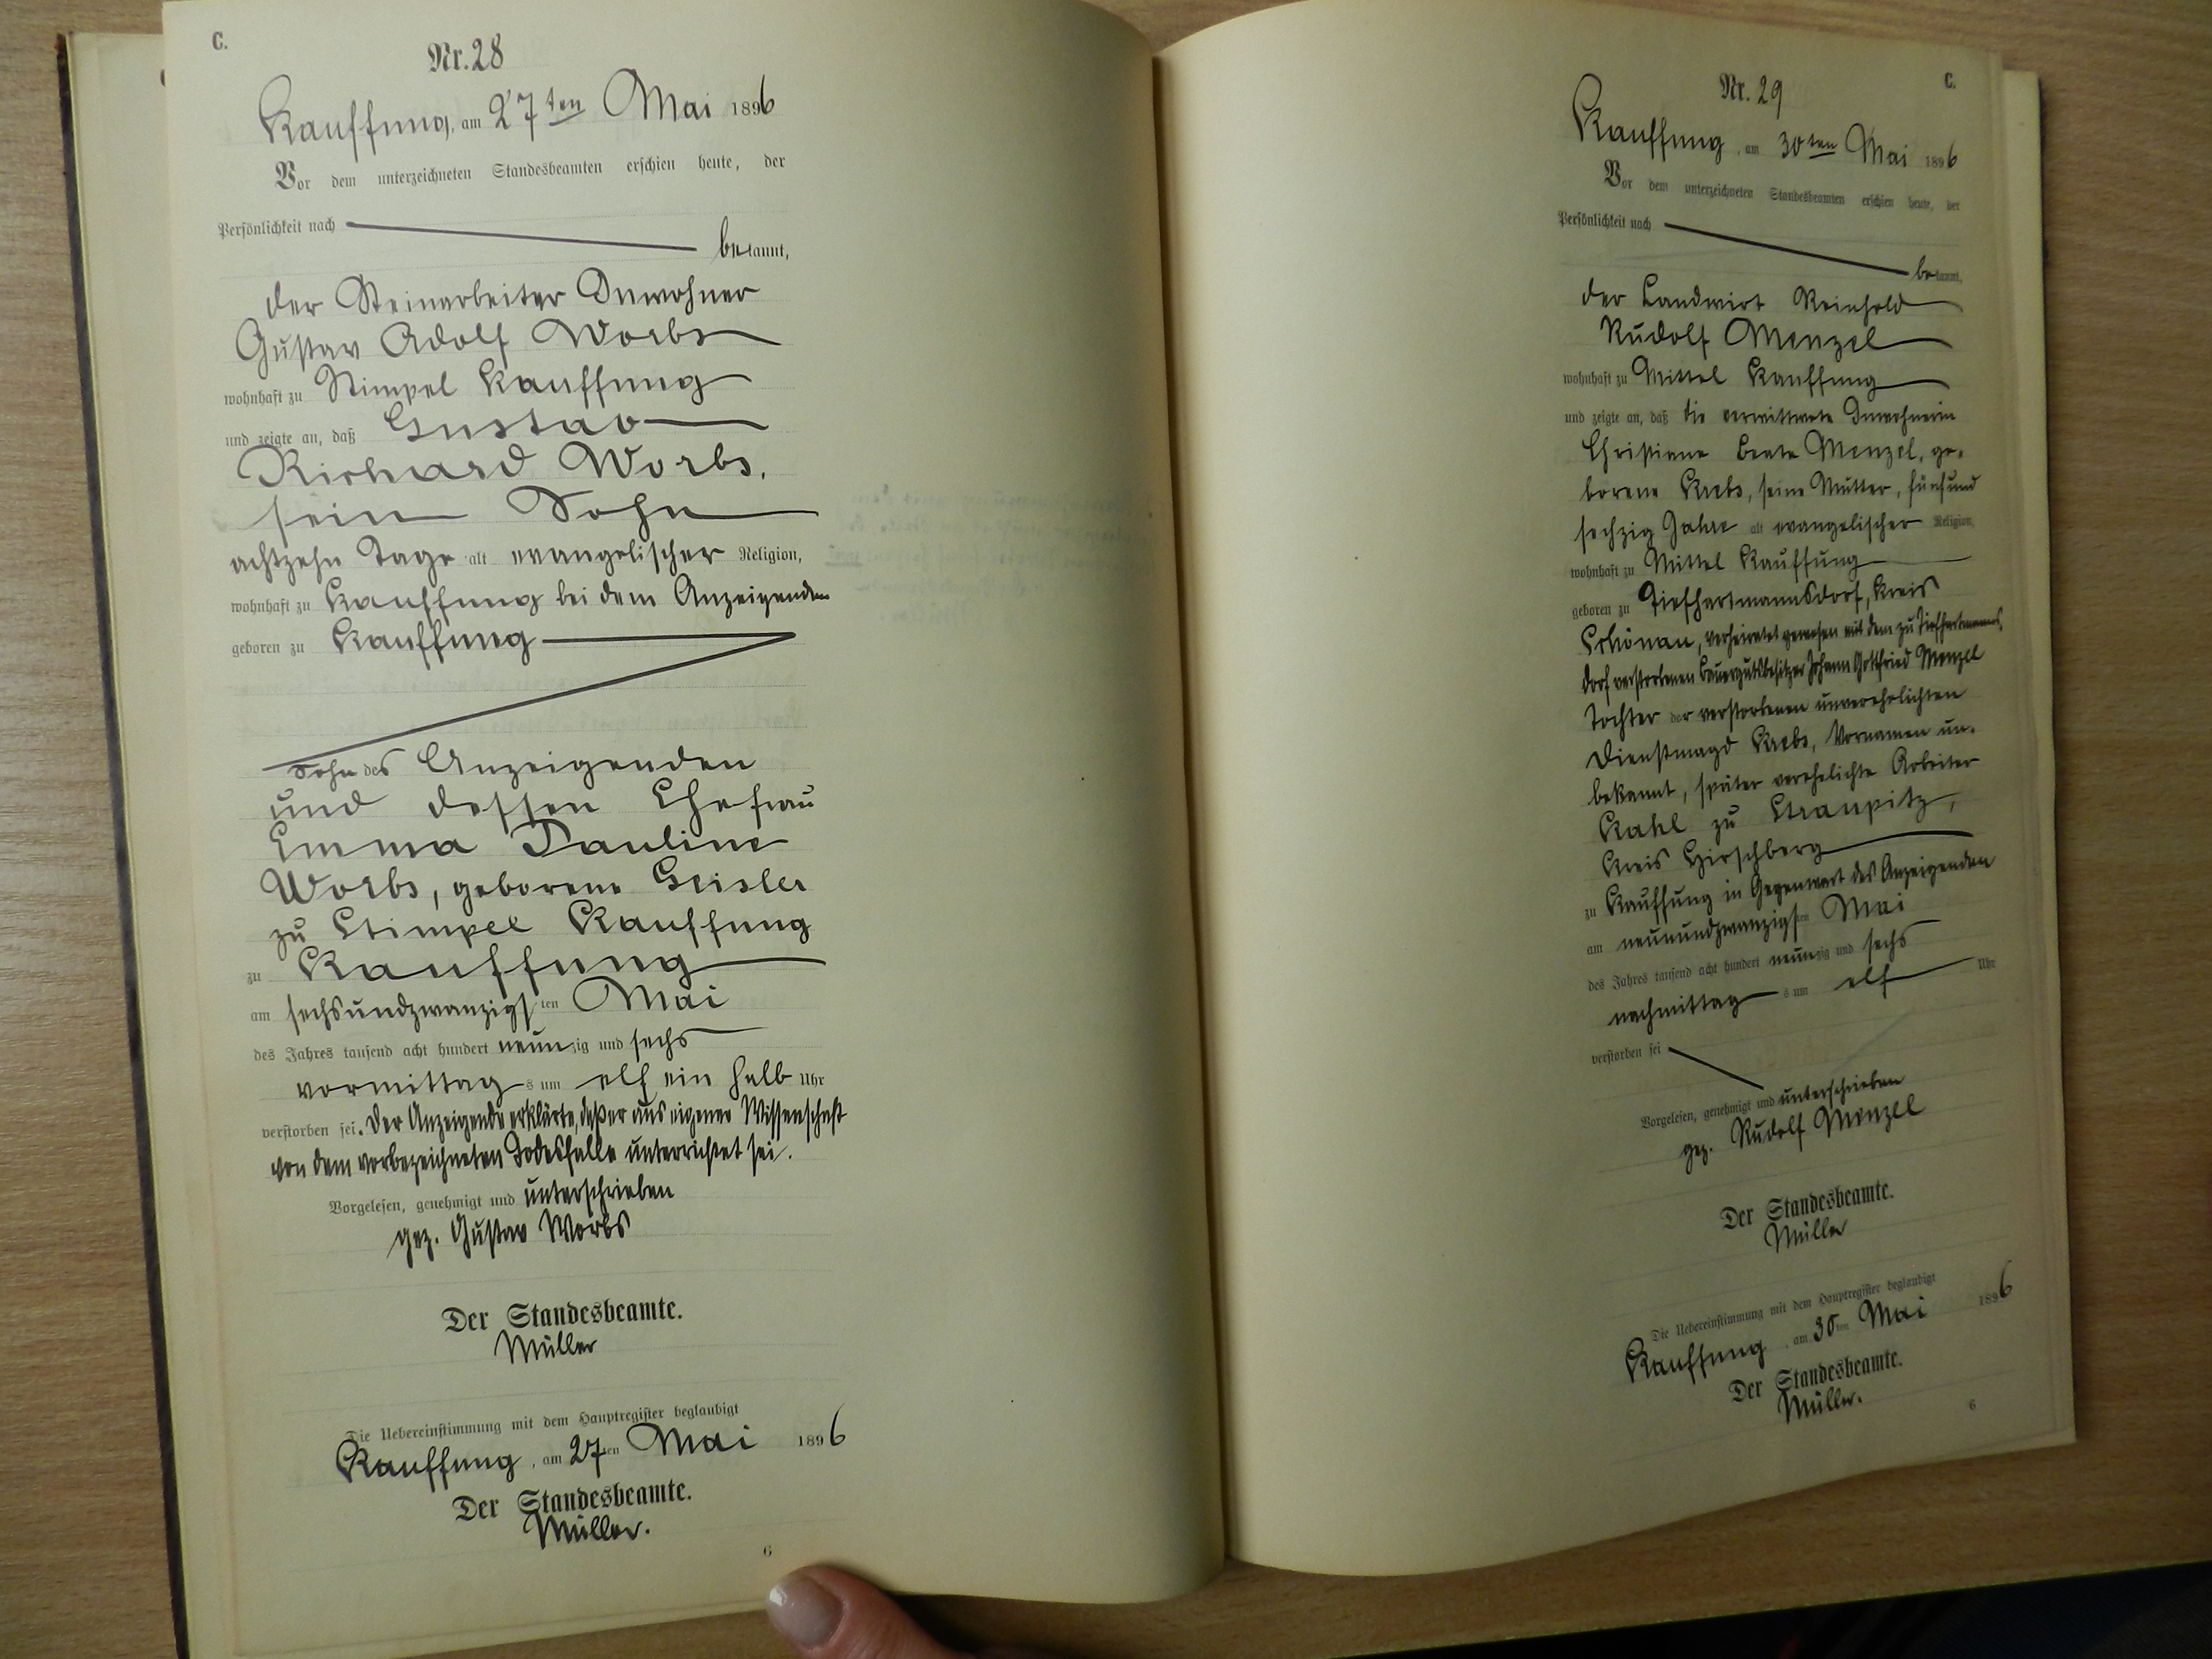 C.
Nr. 28
Kauffung, am 27ten Mai 1896
Vor dem unterzeichneten Standesbeamten erschien heute, der
Persönlichkeit nach
bekannt,
der Steinarbeiter Inwohner
Gustav Adolf Worbs
wohnhaft zu Stimpel Kauffung
und zeigte an, daß Gustav
Richard Worbs,
sein Sohn
achtzehn Tage alt evangelischer Religion,
wohnhaft zu Kauffung bei dem Anzeigenden
geboren zu Kauffung
Sohn des Anzeigenden
und dessen Ehefrau
Emma Pauline
Worbs, geborene Geisler
zu Stimpel Kauffung
zu Kauffung
am sechsundzwanzigsten Mai
des Jahres tausend acht hundert neunzig und sechs
vormittags um elf ein halb Uhr
verstorben sei. Der Anzeigende erklärte, daß er aus eigener Wissenschaft
von dem vorbezeichneten Todesfalle unterrichtet sei.
Vorgelesen, genehmigt und unterschrieben
gez. Gustav Worbs
Der Standesbeamte.
Müller
Die Uebereinstimmung mit dem Hauptregister beglaubigt
Kauffung, am 27ten Mai 1896
Der Standesbeamte.
Müller.
6
C.
Nr. 29
Kauffung, am 30ten Mai 1896
Vor dem unterzeichneten Standesbeamten erschien heute, der
Persönlichkeit nach
bekannt,
der Landwirt Reinhold
Rudolf Menzel
wohnhaft zu Mittel Kauffung
und zeigte an, daß die verwittwete Inwohnerin
Christiane Beate Menzel, ge-
borene Krebs, seine Mutter, fünfund
sechzig Jahre alt evangelischer Religion,
wohnhaft zu Mittel Kauffung
geboren zu Tiefhartmannsdorf, Kreis
Schönau, verheiratet gewesen mit dem zu Tiefhartmanns-
dorf verstorbenen Bauergutsbesitzer Johann Gottfried Menzel
Tochter der verstorbenen unverehelichten
Dienstmagd Krebs, Vornamen un-
bekannt, später verehelichte Arbeiter
Kahl zu Straupitz,
Kreis Hirschberg
zu Kauffung in Gegenwart des Anzeigenden
am neunundzwanzigsten Mai
des Jahres tausend acht hundert neunzig und sechs
nachmittags um elf Uhr
verstorben sei
Vorgelesen, genehmigt und unterschrieben
gez. Rudolf Menzel
Der Standesbeamte.
Müller
Die Uebereinstimmung mit dem Hauptregister beglaubigt
Kauffung, am 30ten Mai 1896
Der Standesbeamte.
Müller.
6